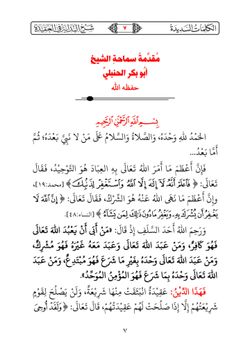 الكلمات السديدة
٧
شرح البداية في العقيدة
مُقَدِّمَةُ سَمَاحَةِ الشَّيخ
أبو بكر الحنبليُّ
حفظه الله
بِسْمِ اللَّهِ الرَّحْمَنِ الرَّحِيمِ
الحَمْدُ للهِ وَحْدَهُ، وَالصَّلَاةُ وَالسَّلَامُ عَلَى مَنْ لَا نَبِيَّ بَعْدَهُ؛ ثُمَّ
أَمَّا بَعدُ...
فَإِنَّ أَعْظَمَ مَا أَمَرَ اللهُ تَعَالَى بِهِ العِبَادَ هُوَ التَّوْحِيدُ، فَقَالَ
تَعَالَى: ﴿ فَاعْلَمْ أَنَّهُ لَا إِلَهَ إِلَّا اللَّهُ وَاسْتَغْفِرْ لِذَنْبِكَ ﴾ [محمد:١٩]،
وَإِنَّ أَعْظَمَ مَا نَهَى اللهُ عَنْهُ هُوَ الشِّرْكَ، فَقَالَ تَعَالَى: ﴿ إِنَّ اللَّهَ لَا
يَغْفِرُ أَنْ يُشْرَكَ بِهِ وَيَغْفِرُ مَا دُونَ ذَلِكَ لِمَنْ يَشَاءُ ﴾ [النساء:٤٨].
وَرَحِمَ اللهُ أَحَدَ السَّلَفِ إِذْ قَالَ: «مَنْ أَبَى أَنْ يَعْبُدَ اللهَ تَعَالَى
فَهُوَ كَافِرٌ، وَمَنْ عَبَدَ اللهَ تَعَالَى وَعَبَدَ مَعَهُ غَيْرَهُ فَهُوَ مُشْرِكٌ،
وَمَنْ عَبَدَ اللهَ تَعَالَى وَحْدَهُ بِغَيْرِ مَا شَرَعَ فَهُوَ مُبْتَدِعٌ، وَمَنْ عَبَدَ
اللهَ تَعَالَى وَحْدَهُ بِمَا شَرَعَ فَهُوَ المُؤْمِنُ المُوَحِّدُ».
فَهَذَا الدِّينُ: عَقِيدَةٌ انْبَثَقَتْ مِنْهَا شَرِيعَةٌ، وَلَنْ يَصْلُحَ لِقَوْمٍ
شَرِيعَتُهُمْ إِلَّا إِذَا صَلُحَتْ لَهُمْ عَقِيدَتُهُمْ، قَالَ تَعَالَى: ﴿ وَلَقَدْ أُوحِيَ
٧